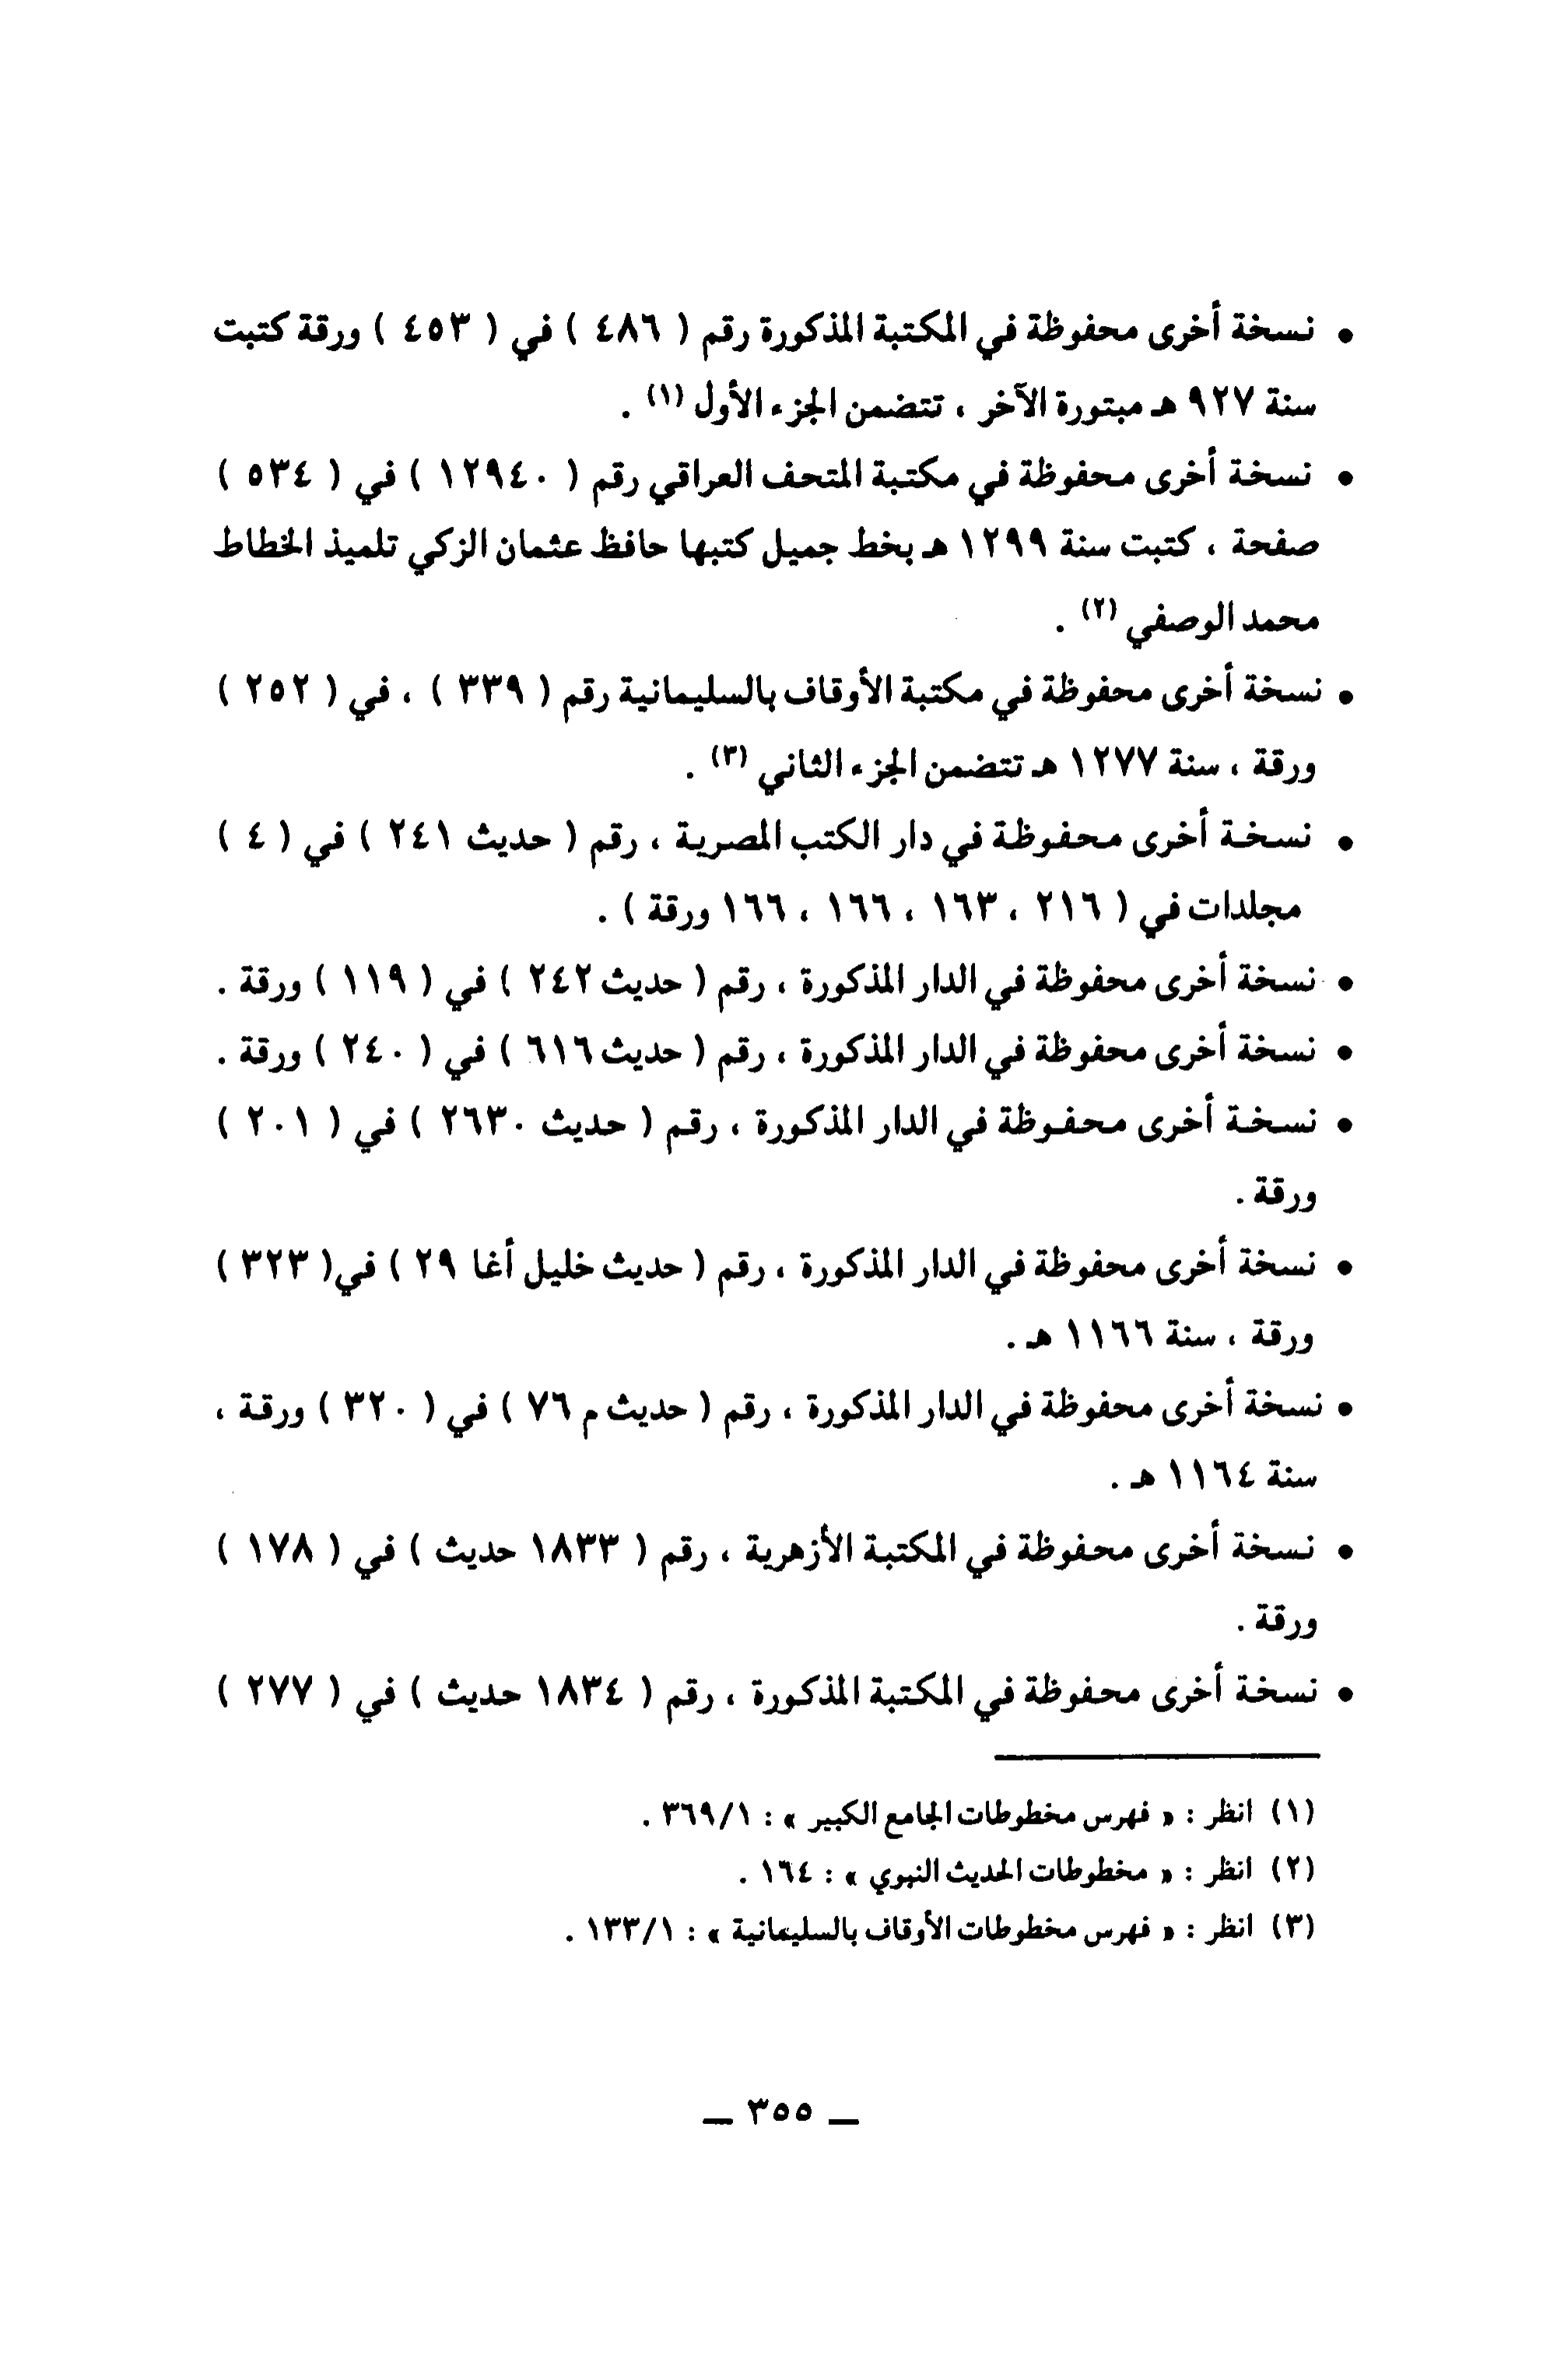 • نسخة أخرى محفوظة في المكتبة المذكورة رقم ( ٤٨٦ ) في ( ٤٥٣ ) ورقة كتبت
سنة ٩٢٧ هـ مبتورة الآخر ، تتضمن الجزء الأول (١) .
• نسخة أخرى محفوظة في مكتبة المتحف العراقي رقم ( ١٢٩٤٠ ) في ( ٥٣٤ )
صفحة ، كتبت سنة ١٢٩٩ هـ بخط جميل كتبها حافظ عثمان الزكي تلميذ الخطاط
محمد الوصفي (٢) .
• نسخة أخرى محفوظة في مكتبة الأوقاف بالسليمانية رقم ( ٣٣٩ ) ، في ( ٢٥٢ )
ورقة ، سنة ١٢٧٧ هـ تتضمن الجزء الثاني (٣) .
• نسخة أخرى محفوظة في دار الكتب المصرية ، رقم ( حديث ٢٤١ ) في ( ٤ )
مجلدات في ( ٢١٦ ، ١٦٣ ، ١٦٦ ، ١٦٦ ورقة ) .
• نسخة أخرى محفوظة في الدار المذكورة ، رقم ( حديث ٢٤٢ ) في ( ١١٩ ) ورقة .
• نسخة أخرى محفوظة في الدار المذكورة ، رقم ( حديث ٦١٦ ) في ( ٢٤٠ ) ورقة .
• نسخة أخرى محفوظة في الدار المذكورة ، رقم ( حديث ٢٦٣٠ ) في ( ٢٠١ )
ورقة .
• نسخة أخرى محفوظة في الدار المذكورة ، رقم ( حديث خليل أغا ٢٩ ) في( ٣٢٣ )
ورقة ، سنة ١١٦٦ هـ .
• نسخة أخرى محفوظة في الدار المذكورة ، رقم ( حديث م ٧٦ ) في ( ٣٢٠ ) ورقة ،
سنة ١١٦٤ هـ .
• نسخة أخرى محفوظة في المكتبة الأزهرية ، رقم ( ١٨٣٣ حديث ) في ( ١٧٨ )
ورقة .
• نسخة أخرى محفوظة في المكتبة المذكورة ، رقم ( ١٨٣٤ حديث ) في ( ٢٧٧ )
(١) انظر : « فهرس مخطوطات الجامع الكبير » : ٣٦٩/١ .
(٢) انظر : « مخطوطات الحديث النبوي » : ١٦٤ .
(٣) انظر : « فهرس مخطوطات الأوقاف بالسليمانية » : ١٣٣/١ .
ـ ٣٥٥ ـ